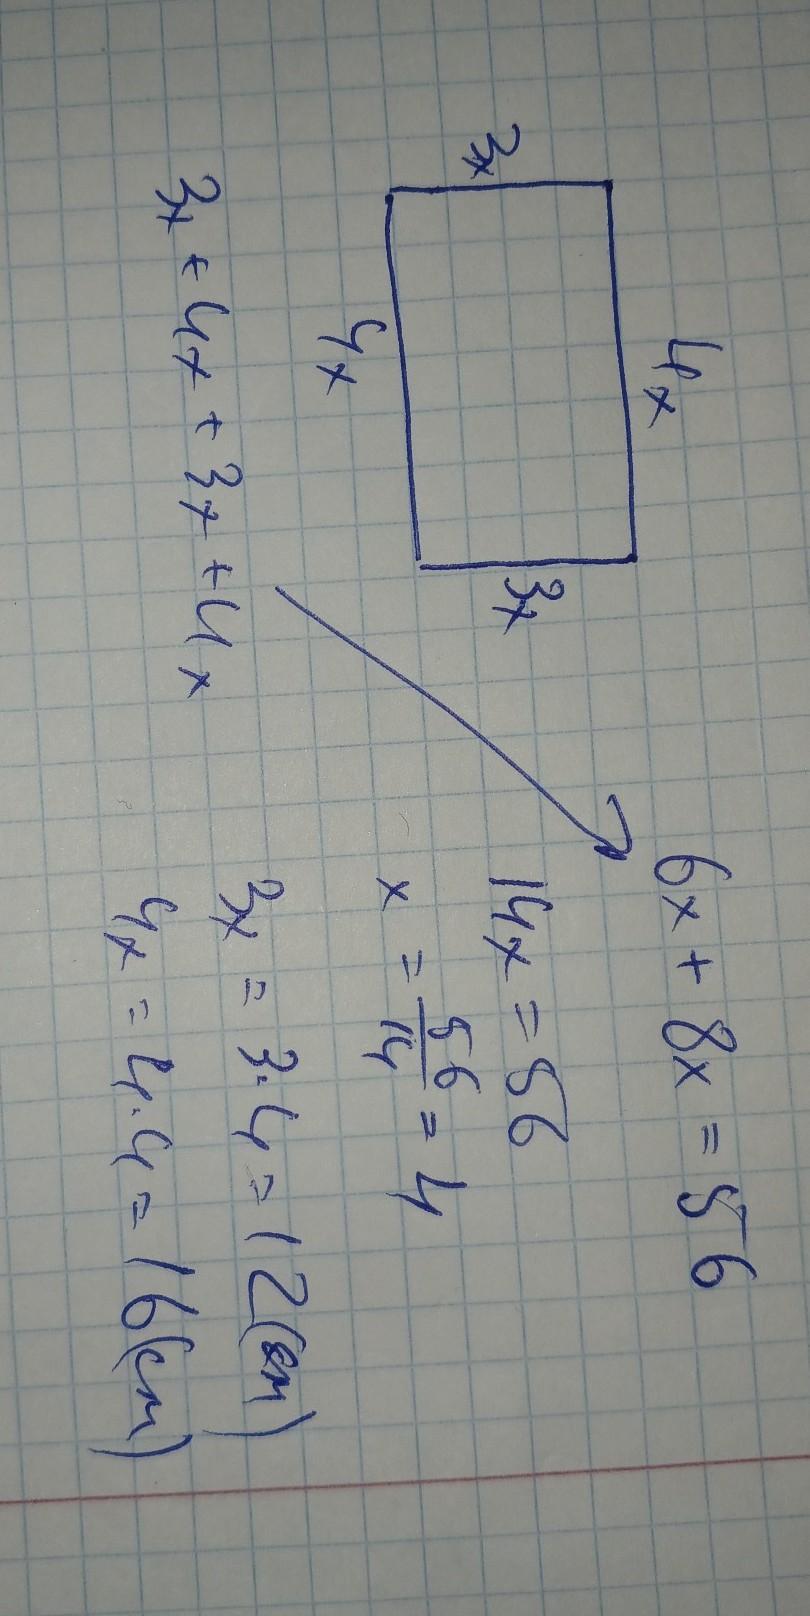 4x
3x
3x
4x
3x + 4x + 3x + 4x
6x + 8x = 56
14x = 56
x = 56/14 = 4
3x = 3·4 = 12(см)
4x = 4·4 = 16(см)